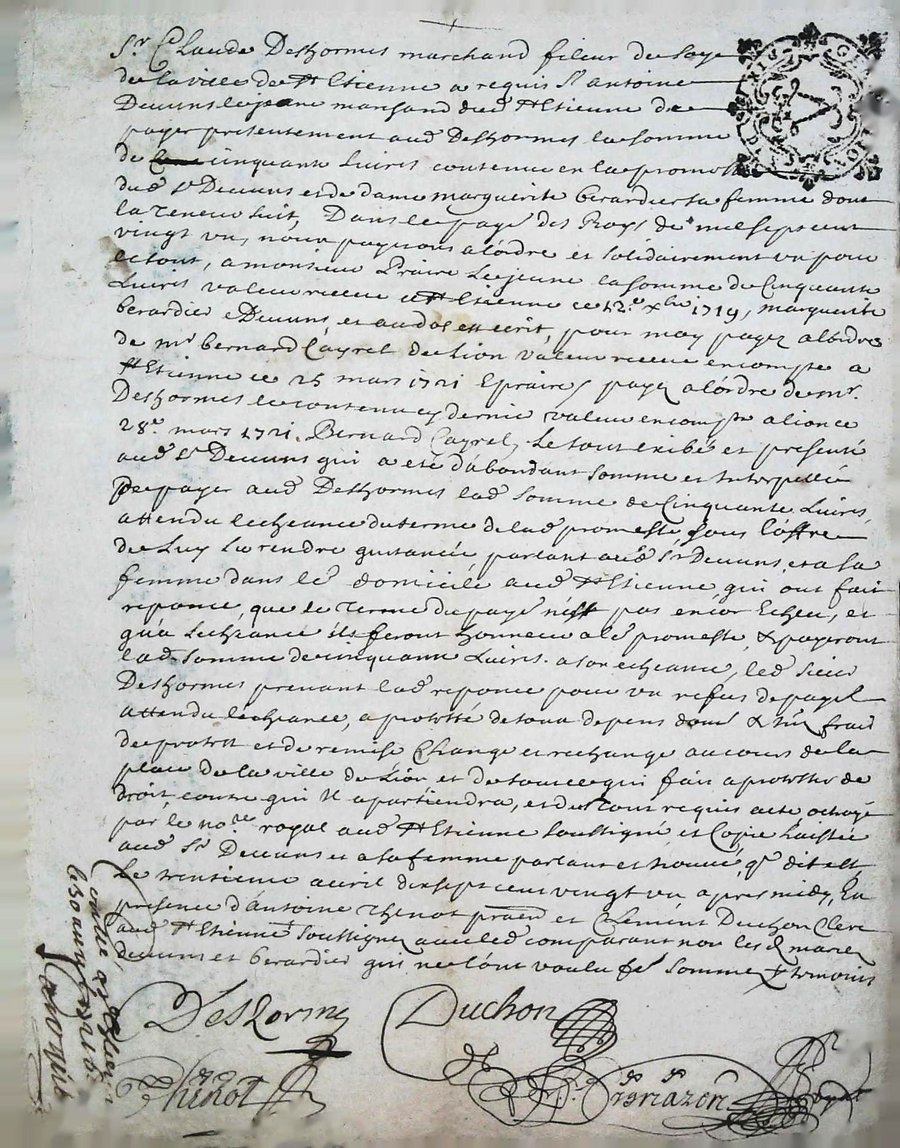 Sr Claude Deshormes marchand fileur de soye
de la ville de St Etienne a requis Sr antoine
Decuns le jeune marchand dud St Etienne de
payer presentement aud Deshormes la somme
de cinquante Livres contenue en la promesse
dud Sr Decuns et de dame marguerite berardier sa femme dont
la Teneur suit, Dans le paye des Roys de mil sept cent
vingt un, nous payerons a lordre et solidairement un pour
le tout, a monsieur Praire Le jeune la somme de Cinquante
Livres valeur receue a St Etienne ce 12e xbre 1719, marguerite
berardier e Decuns, et au dos est ecrit, pour moy payez a lordre
de mr bernard Cayrel de Lion valeur receue en compte a
St Etienne ce 25 mars 1721 Epraire, payez a lordre de mr
Deshormes le contenu cy dernie valeur en compte a lion ce
28e mars 1721. Bernard Cayrel, Le tout exibé et presenté
aud Sr Decuns qui a eté dabondant sommé et Interpellé
De payer aud Deshormes lad somme de Cinquante Livres,
attendu lecheance du terme de lad promesse sous l'offre
de Luy La rendre quitancée parlant aud Sr Decuns, et a sa
femme dans le domicile aud St Etienne, qui ont fait
reponce, que le Terme du paye n'est pas encor Echeu, et
qu'a Lecheance ils feront honneur a le promesse, & payeront
lad somme de cinquante Livres a son echeance, led sieur
Deshormes prenant lad reponce pour un refus de payer
attendu lecheance, a protesté de tous depens dom & Int frais
de protest et de remise Change et rechange au cours de la
place de la ville de Lion et de tout ce qui fait a protester de
droit contre qui Il apartiendra, et du tout requis acte octroyé
par le nore royal aud St Etienne soussigné et Copie Laissée
aud Sr Decuns et a sa femme parlant et trouvé qr dit est
Le trentieme avril dix sept cent vingt un apres midy, En
presence d'antoine Thenot praen et Clement Duchon Clerc
aud St Etienne soussignez avec led comparant non les d mariez
decuns et berardier qui ne lont voulu fe sommé & temoins
Deshormes
Duchon
Thenot